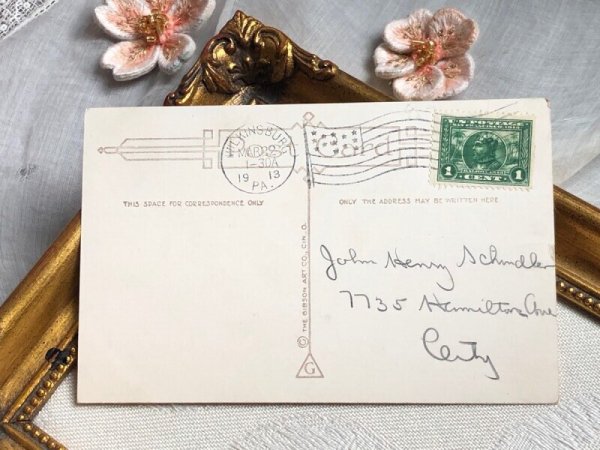 WILKINSBURG
1-30A
1913
PA.
Card
1 CENT. 1
THIS SPACE FOR CORRESPONDENCE ONLY
ONLY THE ADDRESS MAY BE WRITTEN HERE
© THE GIBSON ART CO., CIN. O.
G
John Henry Schindler
7735 Hamilton Ave
City